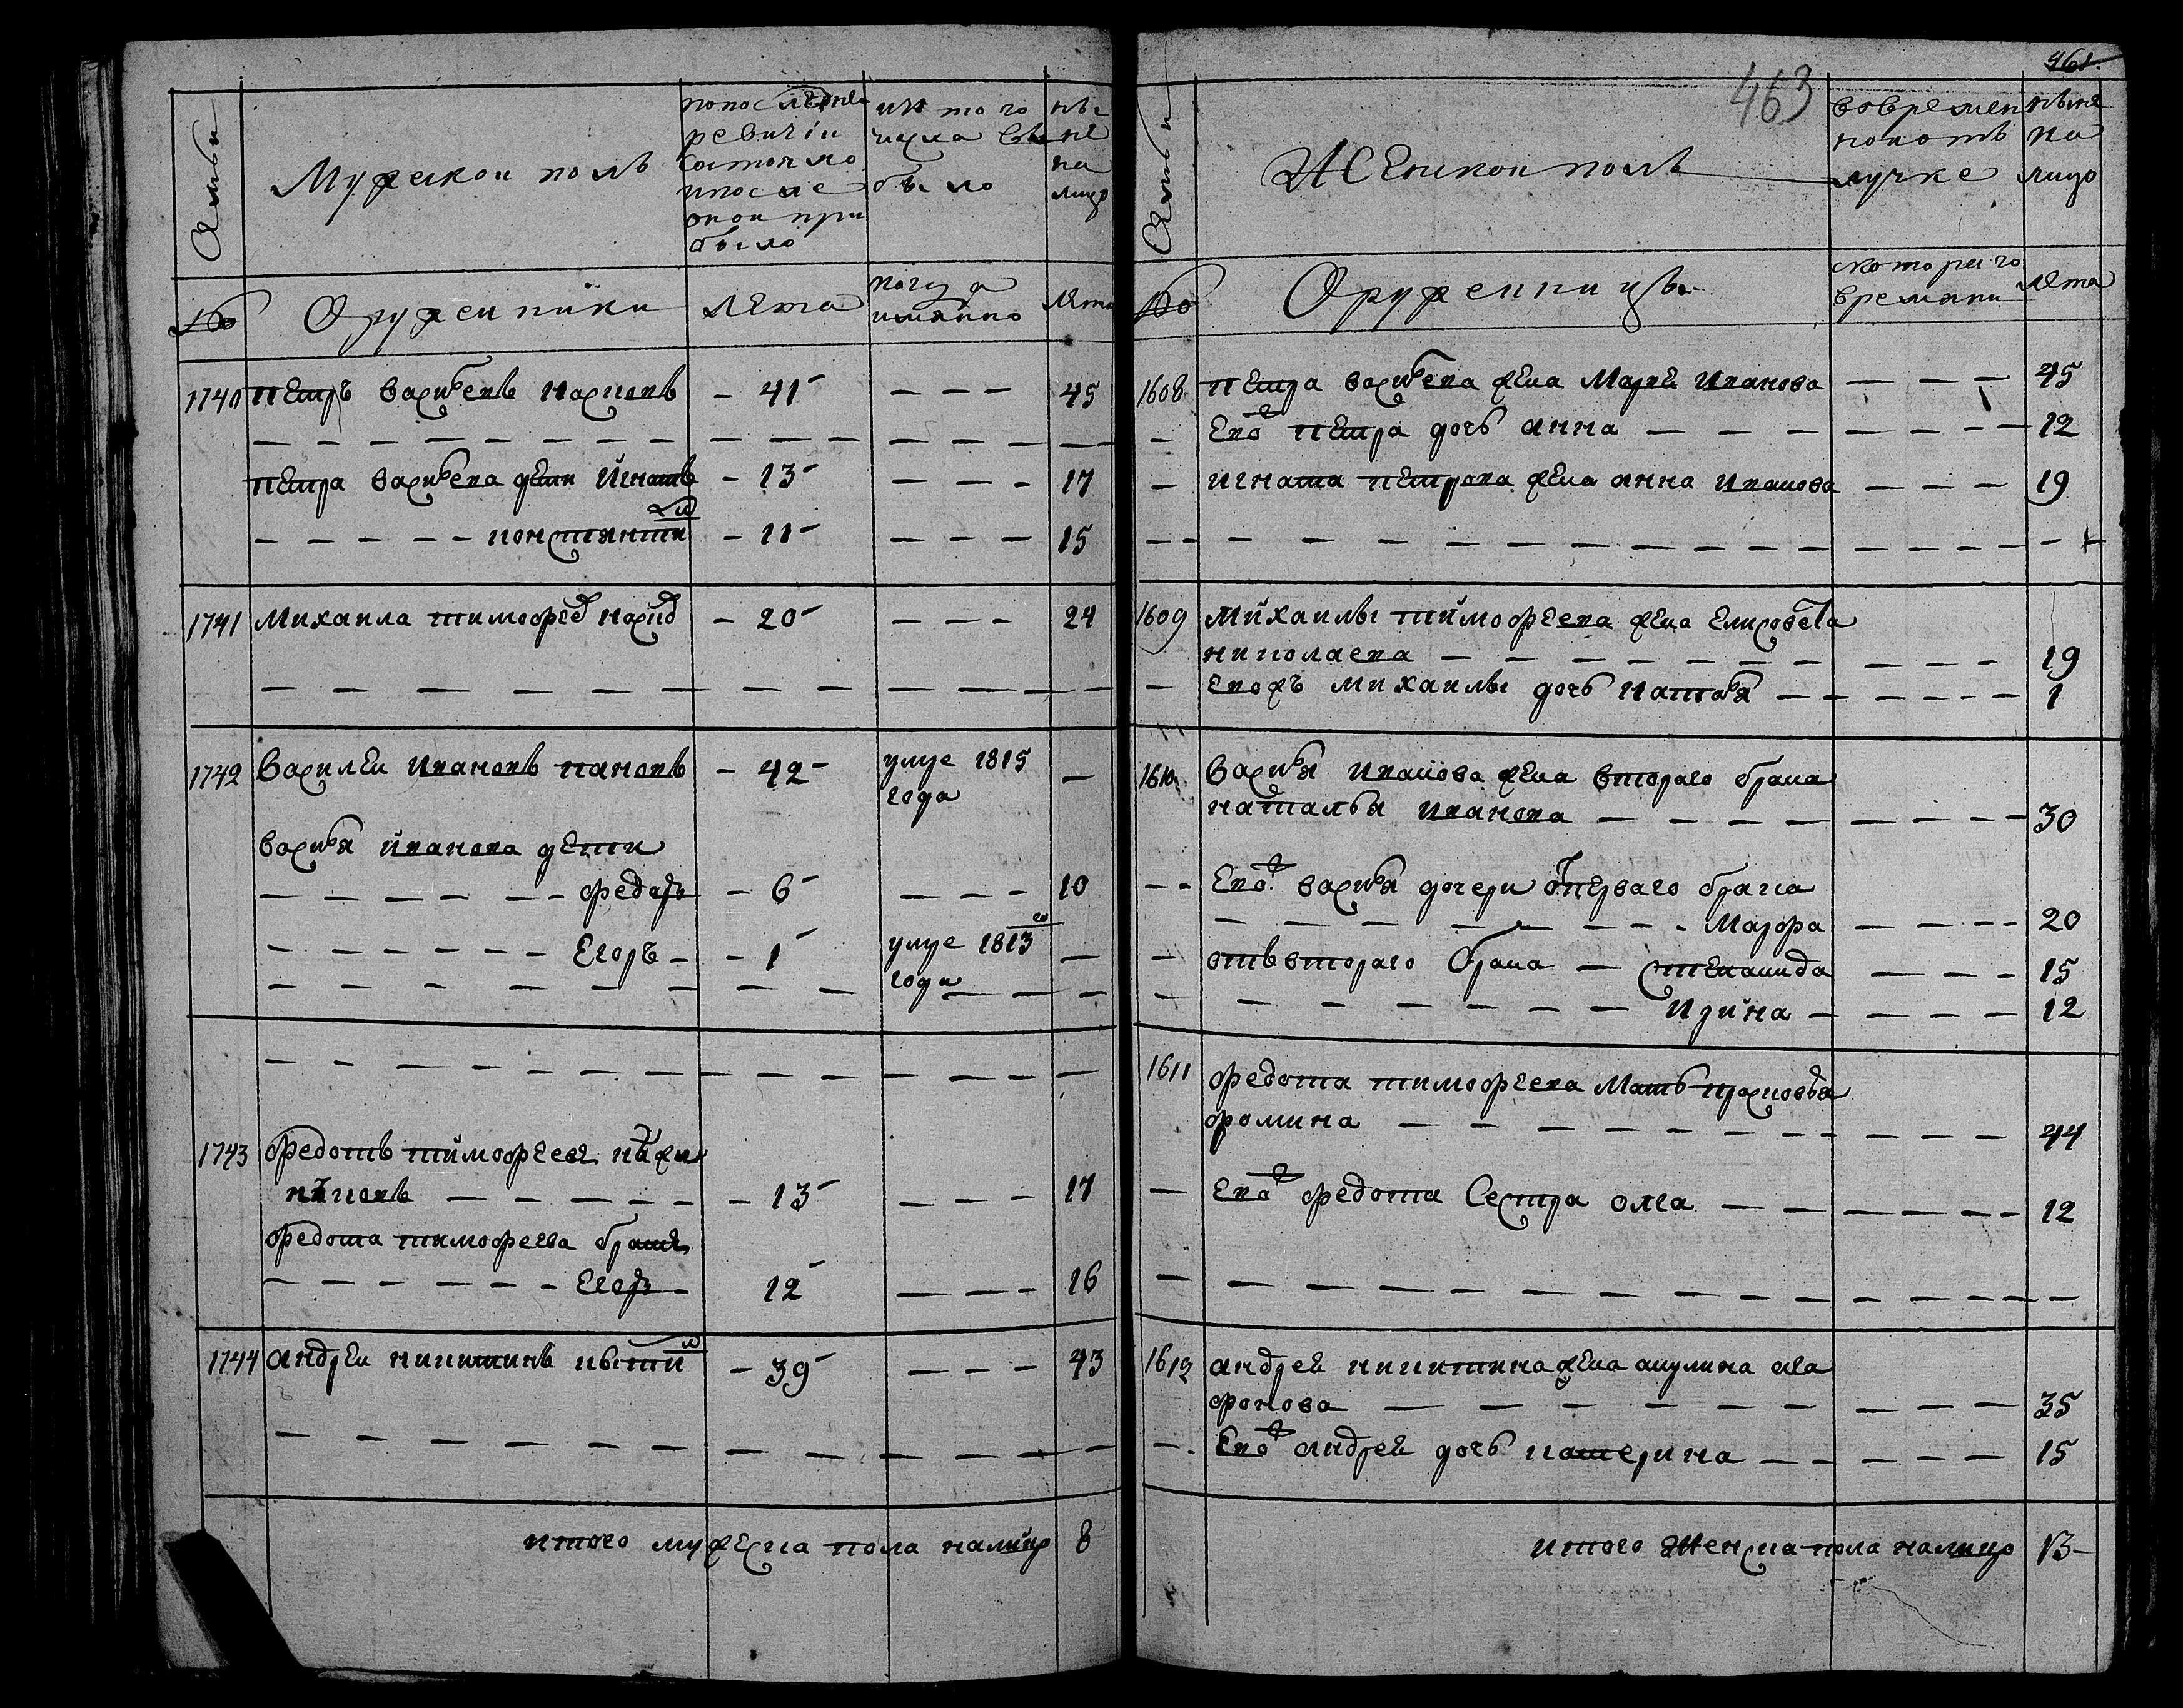 Мужескои полъ
попоследнеи
ревизіи
состояло
ипосле
онои при
было
изъ того
числа вы
было
ны
не
на
лицо
№
Оружеиники
лета
когда
имянно
лета
1740 Петръ васильевъ - 41 - - - 45
Петра васильева дети Игнатъ - 13 - - - 17
константи - 11 - - - 15
1741 Михаила тимофеев - 20 - - - 24
1742 Василеи Ивановъ пановъ - 42 - умре 1815 года -
василья Иванова дети
федоръ - 6 - - - 10
Егоръ - 1 умре 1813го года -
1743 Федотъ тимофеевъ
- 13 - - - 17
федота тимофеева братъ
Егоръ - 12 - - - 16
1744 андреи никитинъ - 39 - - - 43
итого мужеска пола налицо 8
461.
463
Женскои полъ
вовремен
нои отъ
лучке
ныне
на
лицо
№
Оруженницы
скотораго
времяни
лета
1608 Петра васильева жена Марья Иванова - - - 45
- Ево петра дочь анна - - - 12
- игната петрова жена анна Иванова - - - 19
1609 Михаилы тимофеева жена Елисовета
николаева - - - 19
- Евожъ михаилы дочь - - - 1
1610 василья Иванова жена втораго брака
наталья Иванова - - - 30
- - Ево василья дочери отперваго брака
- - - 20
- отъвтораго брака - степанида - - - 15
- Ирина - - - 12
1611 федота тимофеева Мать прасковья
фомина - - - 44
- Ево федота Сестра олга - - - 12
1612 андрея никитина жена акулина ага
фонова - - - 35
- - Ево андрея дочь катерина - - - 15
итого женска пола налицо 13 -